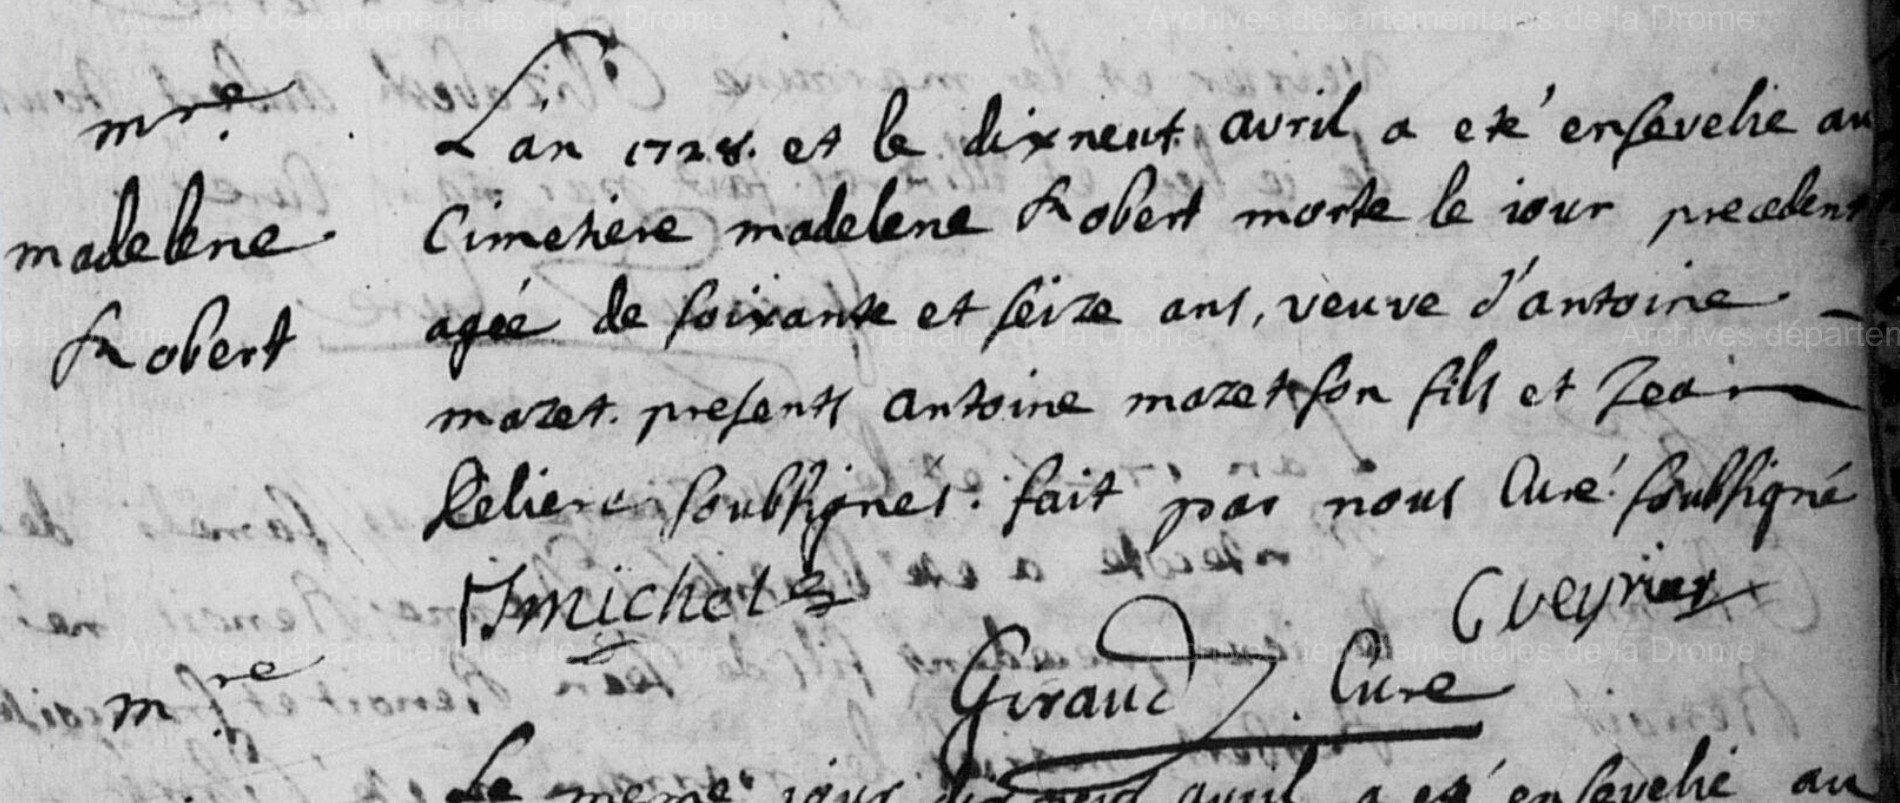 mre.
madelene
Robert
L'an 1728. et le dixneuf avril a eté ensevelie au
Cimetiere madelene Robert morte le iour precedent
agée de soixante et seize ans, veuve d'antoine
mazet. presents antoine mazet son fils et Jean
soubsignes. fait par nous Curé soubsigné
michel
Cveyrier
Giraud. Cure
mre.
Le meme iour dixneuf avril a eté ensevelie au
Archives départementales de la Drome
Archives départementales de la Drome
Archives départementales de la Drome
Archives départementales de la Drome